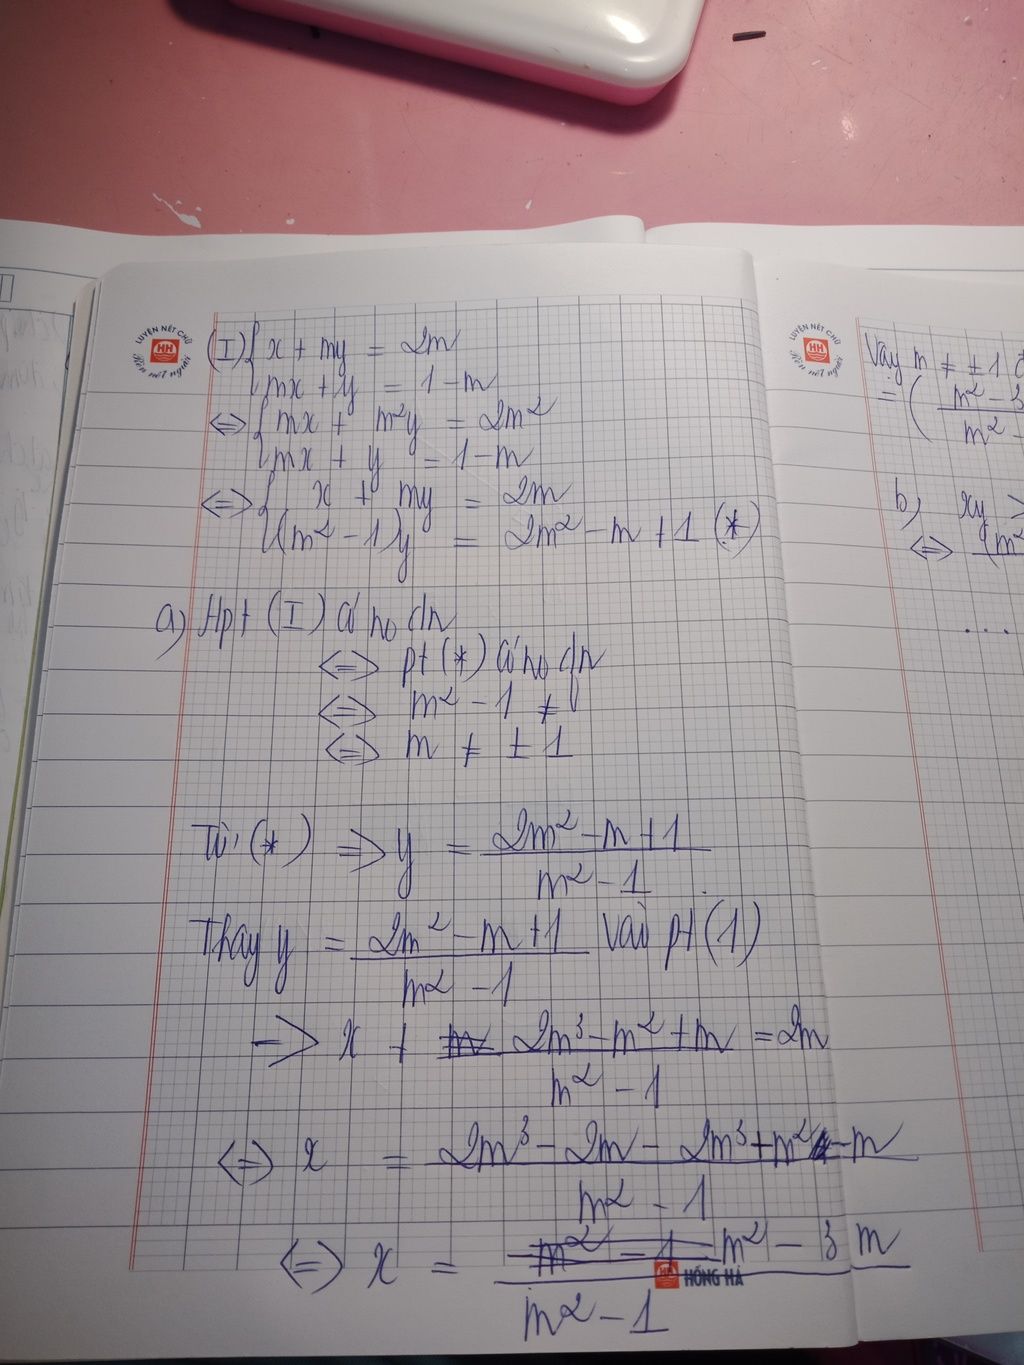 LUYỆN NÉT CHỮ
HH
Rèn nết người
(I) { x + my = 2m
mx + y = 1 - m
<=> { mx + m²y = 2m²
mx + y = 1 - m
<=> { x + my = 2m
(m² - 1)y = 2m² - m + 1 (*)
a) Hpt (I) có no dn
<=> pt (*) có no dn
<=> m² - 1 ≠ 0
<=> m ≠ ± 1
Từ (*) => y = (2m² - m + 1)/(m² - 1)
Thay y = (2m² - m + 1)/(m² - 1) vào pt (1)
=> x + (2m³ - m² + m)/(m² - 1) = 2m
<=> x = (2m³ - 2m - 2m³ + m² - m)/(m² - 1)
<=> x = (m² - 3m)/(m² - 1)
HH HỒNG HÀ
LUYỆN NÉT CHỮ
HH
Rèn nết người
Vậy m ≠ ± 1
= ( m² - 3
m² -
b) xy >
<=> (m²
...